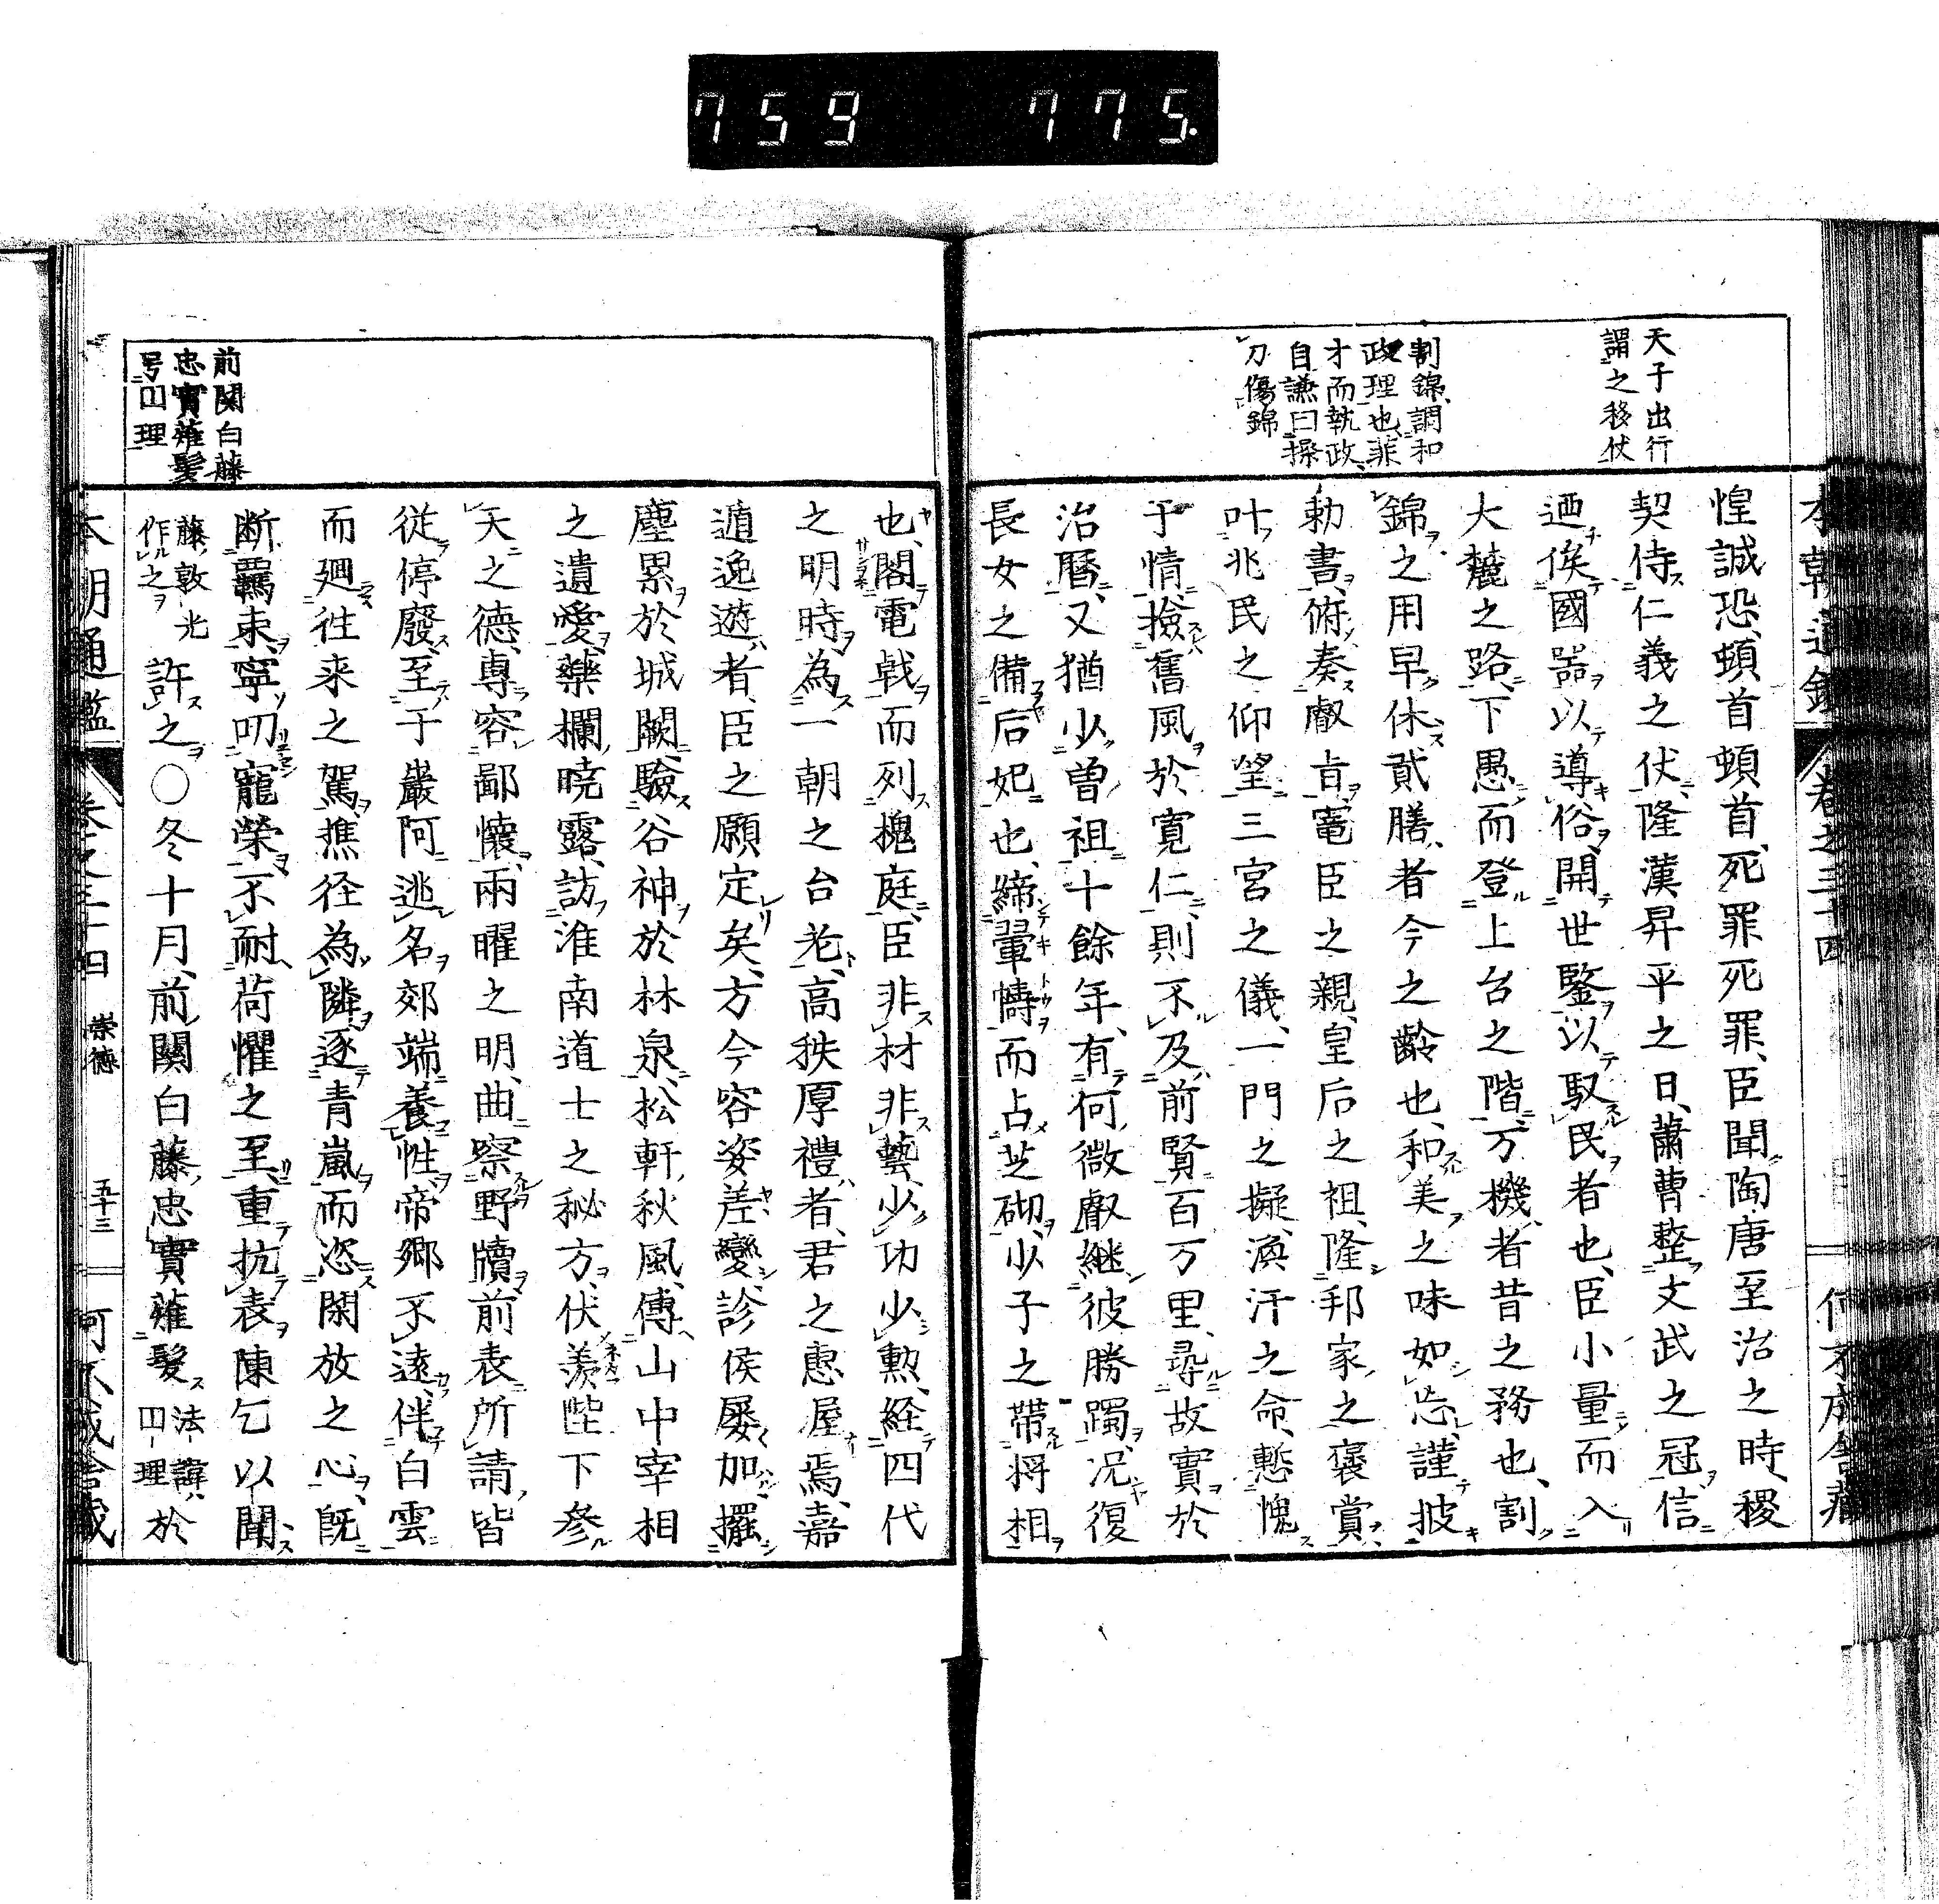 759 775.
本朝通鑑 卷之三十四
天子出行
謂之移仗
割錦調和
政理也、菲
才而執政、
自謙曰操
刀傷錦
惶誠恐、頓首頓首、死罪死罪、臣聞陶唐至治之時、稷
契侍仁義之伏、隆漢昇平之日、蕭曹整文武之冠、信
迺俟國器以導俗、開世鑒以馭民者也、臣小量而入
大麓之路、下愚而登上台之階、万機者昔之務也、割
錦之用早休、貳膳者今之齡也、和美之味如忘、謹披
勅書、俯奏叡旨、竃臣之親、皇后之祖、隆邦家之褒賞、
叶兆民之仰望、三宮之儀、一門之擬、渙汗之命、慙愧
于情、撿舊風於寬仁、則不及前賢百万里、尋故實於
治曆、又猶少曽祖十餘年、有何微叡継彼勝躅、况復
長女之備后妃也、締翬幬而占芝砌、少子之帶将相
也、閣電戟而列槐庭、臣非材非藝、少功少勲、経四代
之明時、為一朝之台老、高秩厚禮者、君之恵屋焉、嘉
遁逸遊者、臣之願定矣、方今容姿差變、診侯屡加、擺
塵累於城闕、驗谷神於林泉、松軒秋風、傳山中宰相
之遺愛、藥欄暁露、訪淮南道士之秘方、伏羨陛下参
天之德、專容鄙懷、兩曜之明、曲察野牘、前表所請、皆
從停廢、至于巖阿逃名、郊端養性、帝郷不遠、伴白雲
而廻徃来之駕、樵径為隣、逐青嵐而恣閑放之心、既
断羈束、寧叨寵榮、不耐荷懼之至、重抗表陳乞以聞、
藤敦光
作之 許之〇冬十月、前関白藤忠實薙髮 法諱
円理 於
前関白藤
忠實薙髪
号円理
本朝通鑑 卷之三十四 崇德 五十三